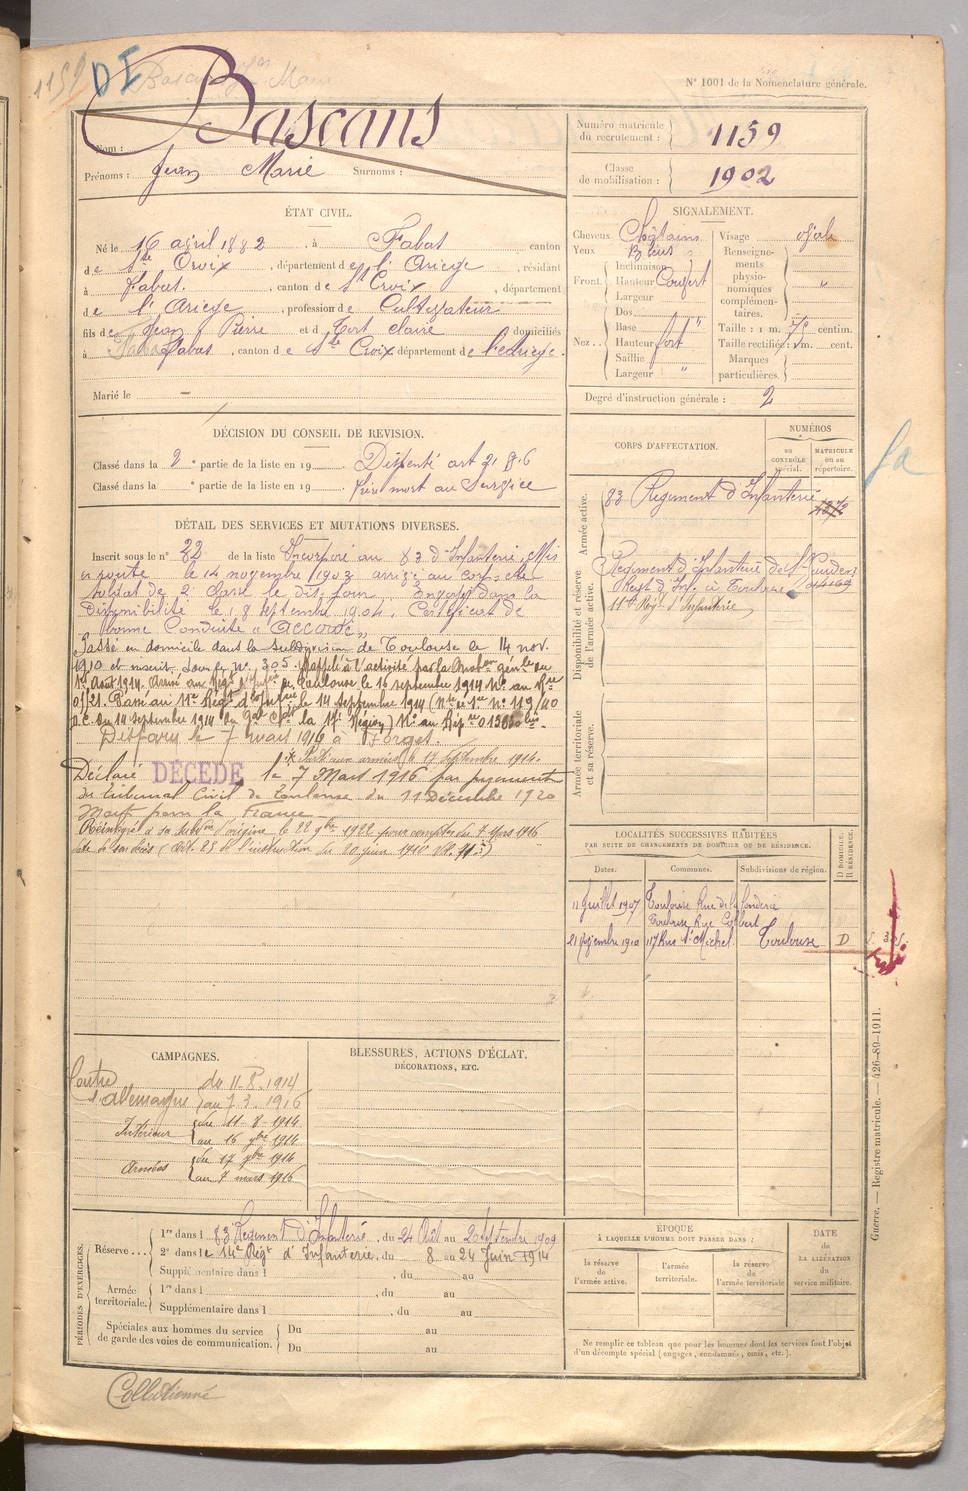 1159 DI
N° 1001 de la Nomenclature générale.
Bascans
Nom :
Prénoms : Jean Marie Surnoms :
Numéro matricule du recrutement : 1159
Classe de mobilisation : 1902
ÉTAT CIVIL.
Né le 16 avril 1882, à Fabas canton
de Ste Croix, département de l'Ariège, résidant
à Fabas. canton de Ste Croix, département
de l'Ariège, profession de Cultivateur
fils de Jean Pierre et de Cort Claire domiciliés
à Fabas, canton de Ste Croix département de l'Ariège.
Marié le -
SIGNALEMENT.
Cheveux Châtains
Yeux Bleus
Front. Inclinaison
Hauteur Couvert
Largeur
Nez. Dos
Base "
Hauteur fort
Saillie
Largeur "
Visage ovale
Renseignements physionomiques complémentaires. "
Taille : 1 m. centim.
Taille rectifiée : 1 m. cent.
Marques particulières.
Degré d'instruction générale : 2
DÉCISION DU CONSEIL DE REVISION.
Classé dans la 2e partie de la liste en 19 Dispensé art 21 §. 6
Classé dans la e partie de la liste en 19 frère mort au Service
DÉTAIL DES SERVICES ET MUTATIONS DIVERSES.
Inscrit sous le n° 22 de la liste Incorporé au 83 d'Infanterie. Mis
en route le 14 novembre 1903 arrivé au corps
soldat de 2 classe le dit jour. dans la
Disponibilité le 18 septembre 1904. Certificat de
bonne Conduite « Accordé »
Passé en domicile dans la subdivision de Toulouse le 14 nov.
1910 et inscrit sous le no. 305. Rappelé à l'activité par la Mobon génle du
1er Août 1914. Arrivé au Régt d'Infrie de Toulouse le 16 septembre 1914 No. au Rre
0/21. Passé au 11e Régt d'Infrie le 14 septembre 1914 No. 119/40
du 14 septembre 1914 du Gal la 17e Région) No. au Rép.
Disparu le 7 mars 1916 à Forges.
Parti aux armées le 17 septembre 1914.
Déclaré DÉCÉDÉ le 7 Mars 1916 par jugement
du tribunal Civil de Toulouse du 11 Décembre 1920
Mort pour la France
Réintégré à sa subdon d'origine le 22 9bre 1922 pour compter du 7 Mars 1916
date de son décès (art. 25 de l'instruction du 20 juin 1910
CORPS D'AFFECTATION.
NUMÉROS
au CONTRÔLE spécial.
MATRICULE ou au répertoire.
Armée active.
83 Régiment d'Infanterie
Disponibilité et réserve de l'armée active.
Régiment d'Infanterie de St Gaudens
Régt d'Inf. à Toulouse
11me Régt d'Infanterie
Armée territoriale et sa réserve.
LOCALITÉS SUCCESSIVES HABITÉES
PAR SUITE DE CHANGEMENTS DE DOMICILE OU DE RÉSIDENCE.
Dates. Communes. Subdivisions de région. D DOMICILE. R RÉSIDENCE.
Juillet 1907 Toulouse Rue de la Fonderie
Toulouse Rue Colbert
1910 117 Rue St Michel. Toulouse D
CAMPAGNES.
Contre l'Allemagne du 11-8-1914 au 7 3 1916
Intérieur du 11-8 1914 au 16 7bre 1914
Armées du 17 7bre 1914 au 7 mars 1916
BLESSURES, ACTIONS D'ÉCLAT,
DÉCORATIONS, ETC.
PÉRIODES D'EXERCICES.
Réserve 1re dans le 83 Régiment d'Infanterie, du 24 Août au Septembre 1909
2e dans le 14e Régt d'Infanterie, du 8 au 24 Juin 1914
Supplémentaire dans l , du au
Armée territoriale. 1re dans l , du au
Supplémentaire dans l , du au
Spéciales aux hommes du service de garde des voies de communication. Du au
Du au
ÉPOQUE
À LAQUELLE L'HOMME DOIT PASSER DANS :
la réserve de l'armée active. l'armée territoriale. la réserve de l'armée territoriale
DATE de LA LIBÉRATION du service militaire.
Ne remplir ce tableau que pour les hommes dont les services font l'objet
d'un décompte spécial (engagés, condamnés, omis, etc.).
Guerre. — Registre matricule. — 426-89-1911.
Collationné